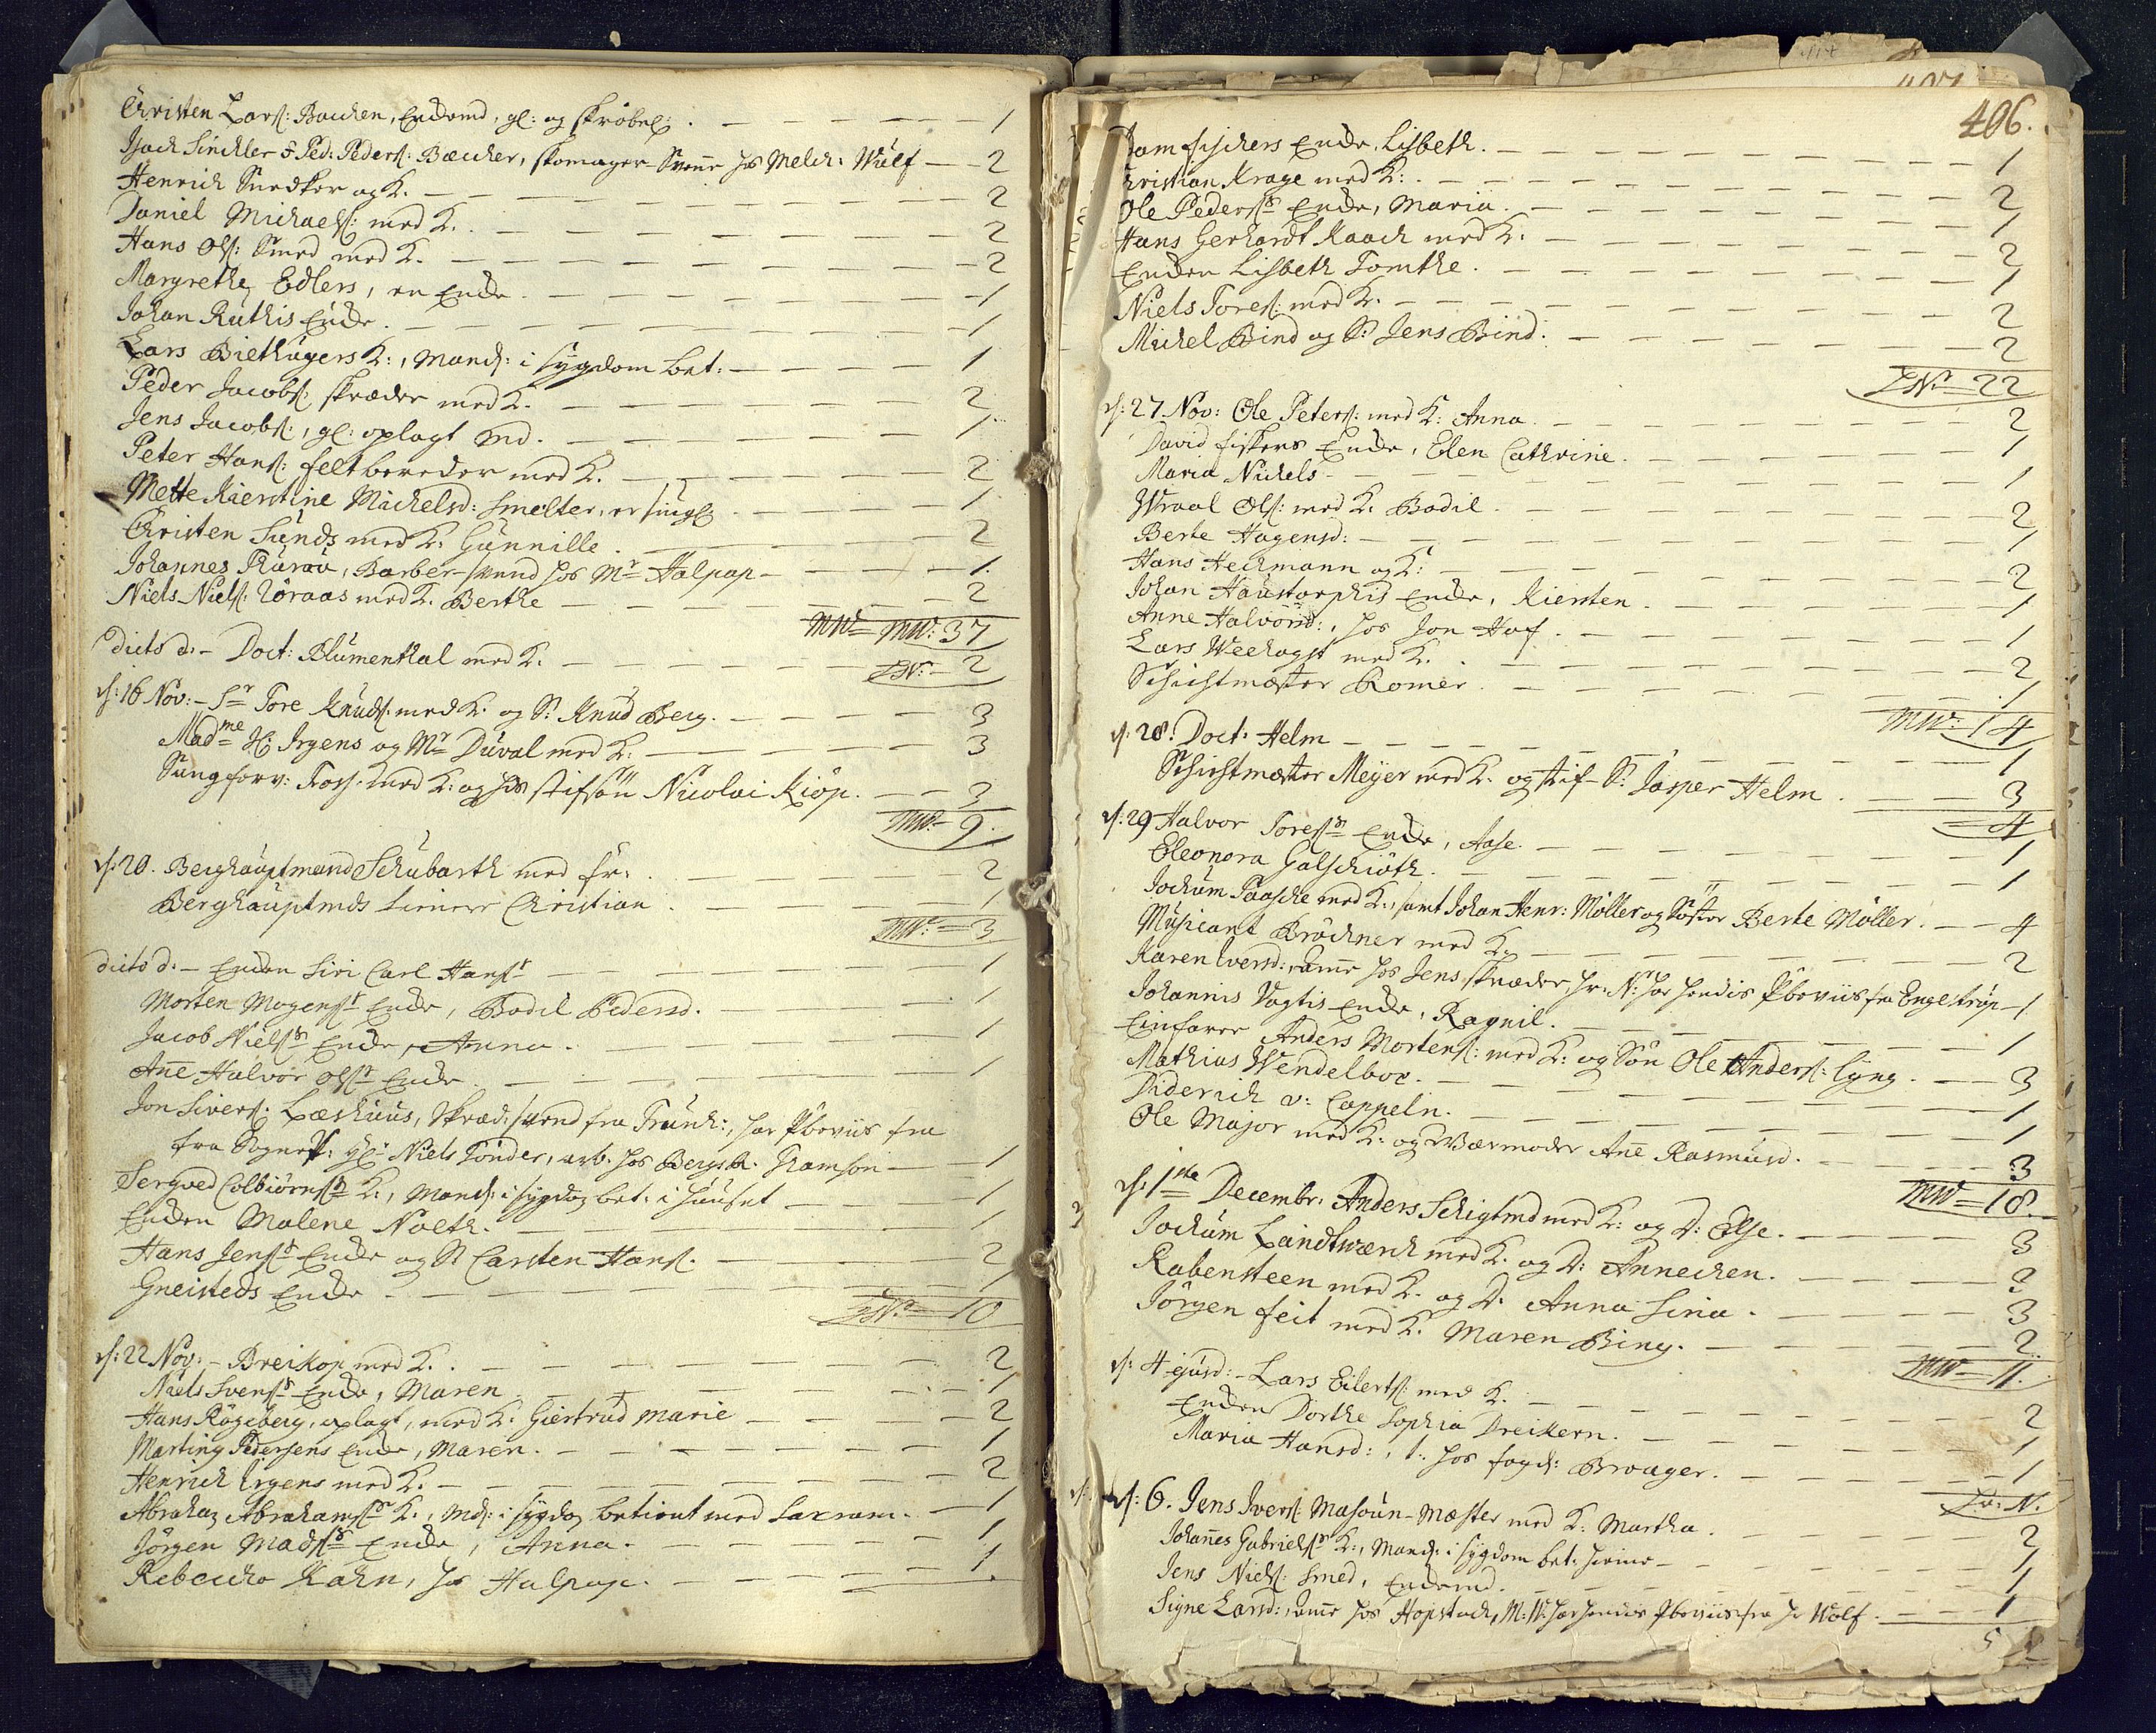 Christen Lars: Bachen, Enkemd, gl: og skröbel: 1
Isach Sinckler & Ped: Peders: Bæcker, skomager Svenne hos Melch: Wülf 2
Henrich Snedker og K. 2
Daniel Michaels: med K. 2
Hans Ols: Smed med K. 2
Margrethe Edlers, en Enke 1
Johan Rüthis Enke. 1
Lars Biethügers K:, Mands: i sygdom bet: 1
Peder Jacobs: skræder med K. 2
Jens Jacobs:, gl: oplagt md. 1
Peter Hans: feltbereder med K. 2
Mette Kierstine Michelsd: Smelter, er siugl 1
Christen Sünds med K: Günnille 2
Johannes Thürau, Barber-svend hos Mr Halpap 1.
Niels Niels: Röraas med K. Berthe 2
MW: 37
dicto d. - Doct: Blumenthal med K. 2
ZN: 2
d: 16 Nov: - Sr Tore Knuds: med K. og S: Knud Berg. 3
Madme H: Irgens og Mr Düval med K: 3
Sangforv: Foss: med K: og hs stifsön Nicolai Kiöp. 3
MW- 9.
d: 20. Berghauptmand Schubarth med fr: 2
Berghauptmds tienere Christian 1
MW: 3
dicto d. - Enken Siri Carl Hanss 1
Morten Mogenss Enke, Bodil Pedersd. 1
Jacob Nielss Enke, Anna. 1
Ane Halvor Olss Enke 1
Jon Sivers: Læshuus, skræd: svend fra Trundh:, har Pbeviis fra
fra Sognepr: Hr Niels Tönder, arb. hos Bergsk. Thamson 1
Sergved Colbiörnss K:, Mands: i sygdom bet: i Huuset 1
Enken Malene Nolth. 1
Hans Jenss Enke og S: Carsten Hans. 2
Gneisteds Enke 1
ZN: 10
d: 22 Nov: - Breikop med K. 2
Niels Svenss Enke, Maren 1
Hans Rögeberg, oplagt, med K. Giertrud Marie 2
Marting Pedersens Enke, Maren. 1
Henrich Irgens med K. 2
Abraham Abrahamss K:, Mds: i sygdom betient med Sacram. 1
Jörgen Madss Enke, Anna. 1
Rebecche Kahn, hos Halpap. 1.
406.
fischers Enke, Lisbeth. 1
Christian Krage med K: 2
Ole Pederss Enke, Maria. 1
Hans Gerhardt Kaach med K: 2
Enken Lisbeth Tomthe. 1
Niels Tores: med K. 2
Michel Bind og S: Jens Bind: 2
ZN: 22
d: 27 Nov: Ole Peters: med K: Anna 2
David fiskers Enke, Elen Cathrine 1
Maria Nickels 1
Wraal Ols: med K. Bodil 2
Berte Hagensd: 1
Hans Heckmann og K: 2
Johan Haustorphis Enke, Kiersten 1
Anne Halvörsd:, hos Jon Haf. 1
Lars Weehagst med K. 2
Schichtmæster Romer. 1
MW: 14
d: 28. Doct: Helm 1
Schichtmæster Meyer med K. og stif-S: Jasper Helm 3
4
d: 29 Halvor Toress Enke, Aase. 1
Eleonora Galschiöth. 1
Jochum Paasche med K:, samt Johan Henr: Möller og Söster Berte Möller. 4
Musicant Bröckner med K. 2
Karen Iversd:, Amme hos Jens skræder, Hr: N: har hendis Pbeviis fra Engeström 1
Johannis Vogtis Enke, Ragnil. 1
Einfarer Anders Mortens: med K: og Sön Ole Anders: Lyng. 3
Mathias Wendelboe. 1
Diderich v: Cappeln. 1
Ole Major med K: og Værmoder Ane Rasmusd. 3
MW 18.
d: 1ste Decembr: Anders Schigtmd med K: og D: Else. 3
Jochum Landtværch med K. og D: Annechen. 3
Rabensteen med K. og D. Anna Siria 3
Jörgen feit med K: Maren Bing. 2
MW 11.
d: 4 ejusd: - Lars Eilerts: med K. 2
Enken Dorthe Sophia Dreikern. 1
Maria Hansd:, t: hos fogd: Brouger. 1
ZN.
d: 6. Jens Ivers: Masoun-Mæster med K: Martha 2
Johanes Gabrielss K:, Mands: i sygdom bet: hiemme 1
Jens Niels: Smed, Enkemd. 1
Signe Larsd:, Amme hos Hopstoch, M: W: har hendes Pbeviis fra Hr Wolf 1
5